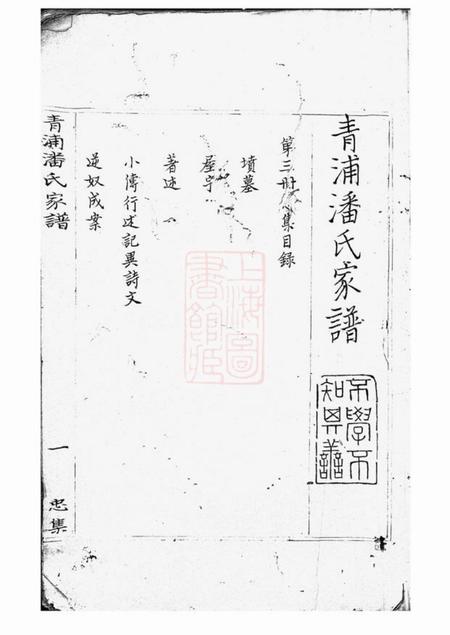 青浦潘氏家譜
不學不
知其善
第三册忠集目録
墳墓
屋宇
著述
小傳行述記異詩文
逆奴成案
青浦潘氏家譜
一
忠集
上海圖
書館藏